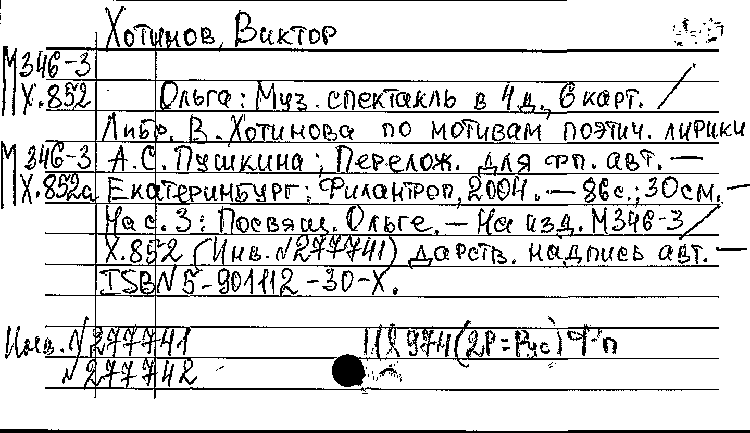 Хотимов, Виктор
М346-3
Х.852 Ольга: Муз. спектакль в 4 д., 6 карт. /
Либр. В. Хотимова по мотивам поэтич. лирики
М346-3 А.С. Пушкина; Перелож. для фп. авт. —
Х.852а Екатеринбург: Филантроп, 2004. — 86 с.; 30 см. —
На с. 3: Посвящ. Ольге. — На изд. М346-3/
Х.852 (Инв. №277741) дарств. надпись авт. —
ISBN 5-901112-30-Х.
Инв. №277741 974(2Р=Рус) Ф-п
№277742